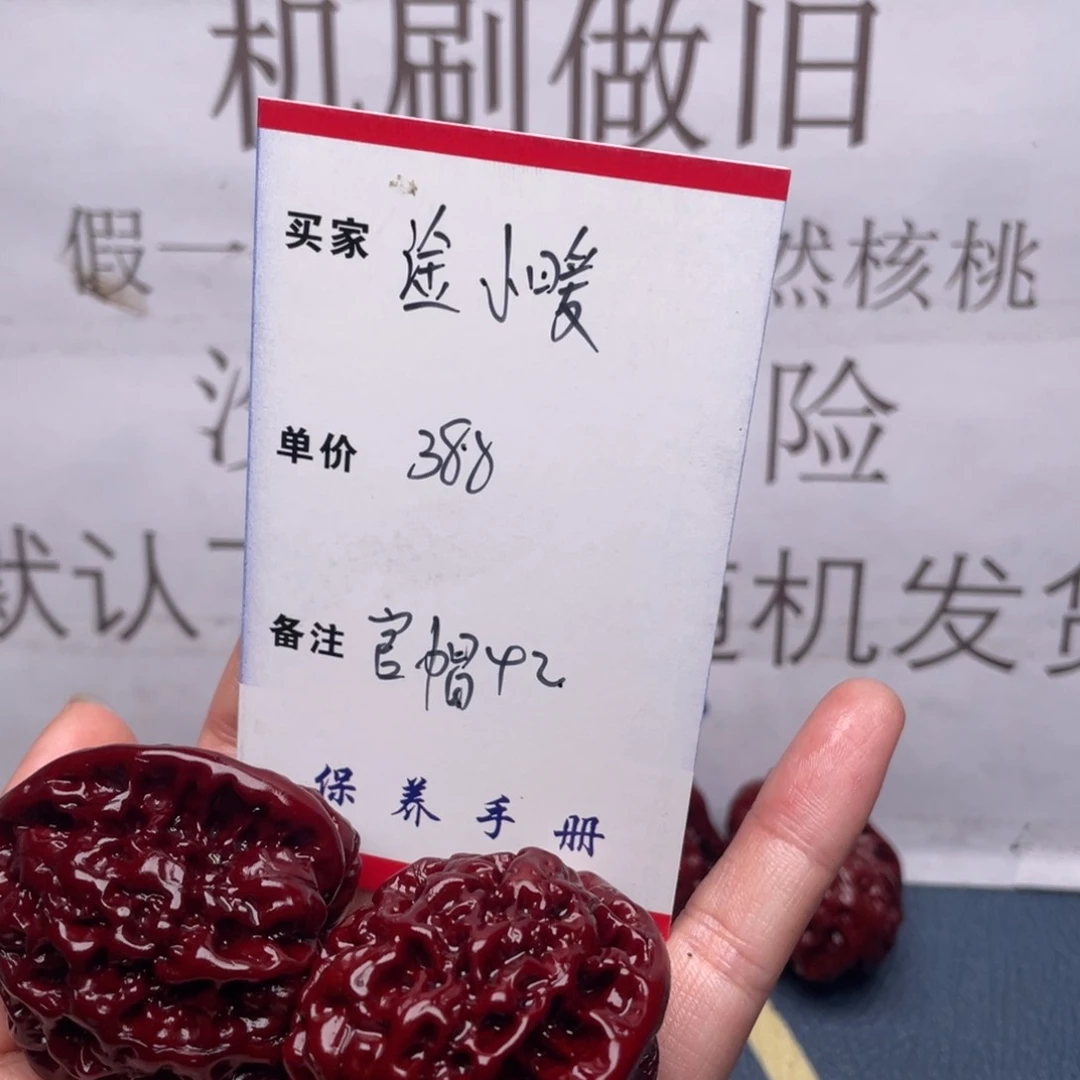 机刷做旧
假一 然核桃
险
默认 随机发货
买家 途小暖
单价 388
备注 官帽42
保养手册